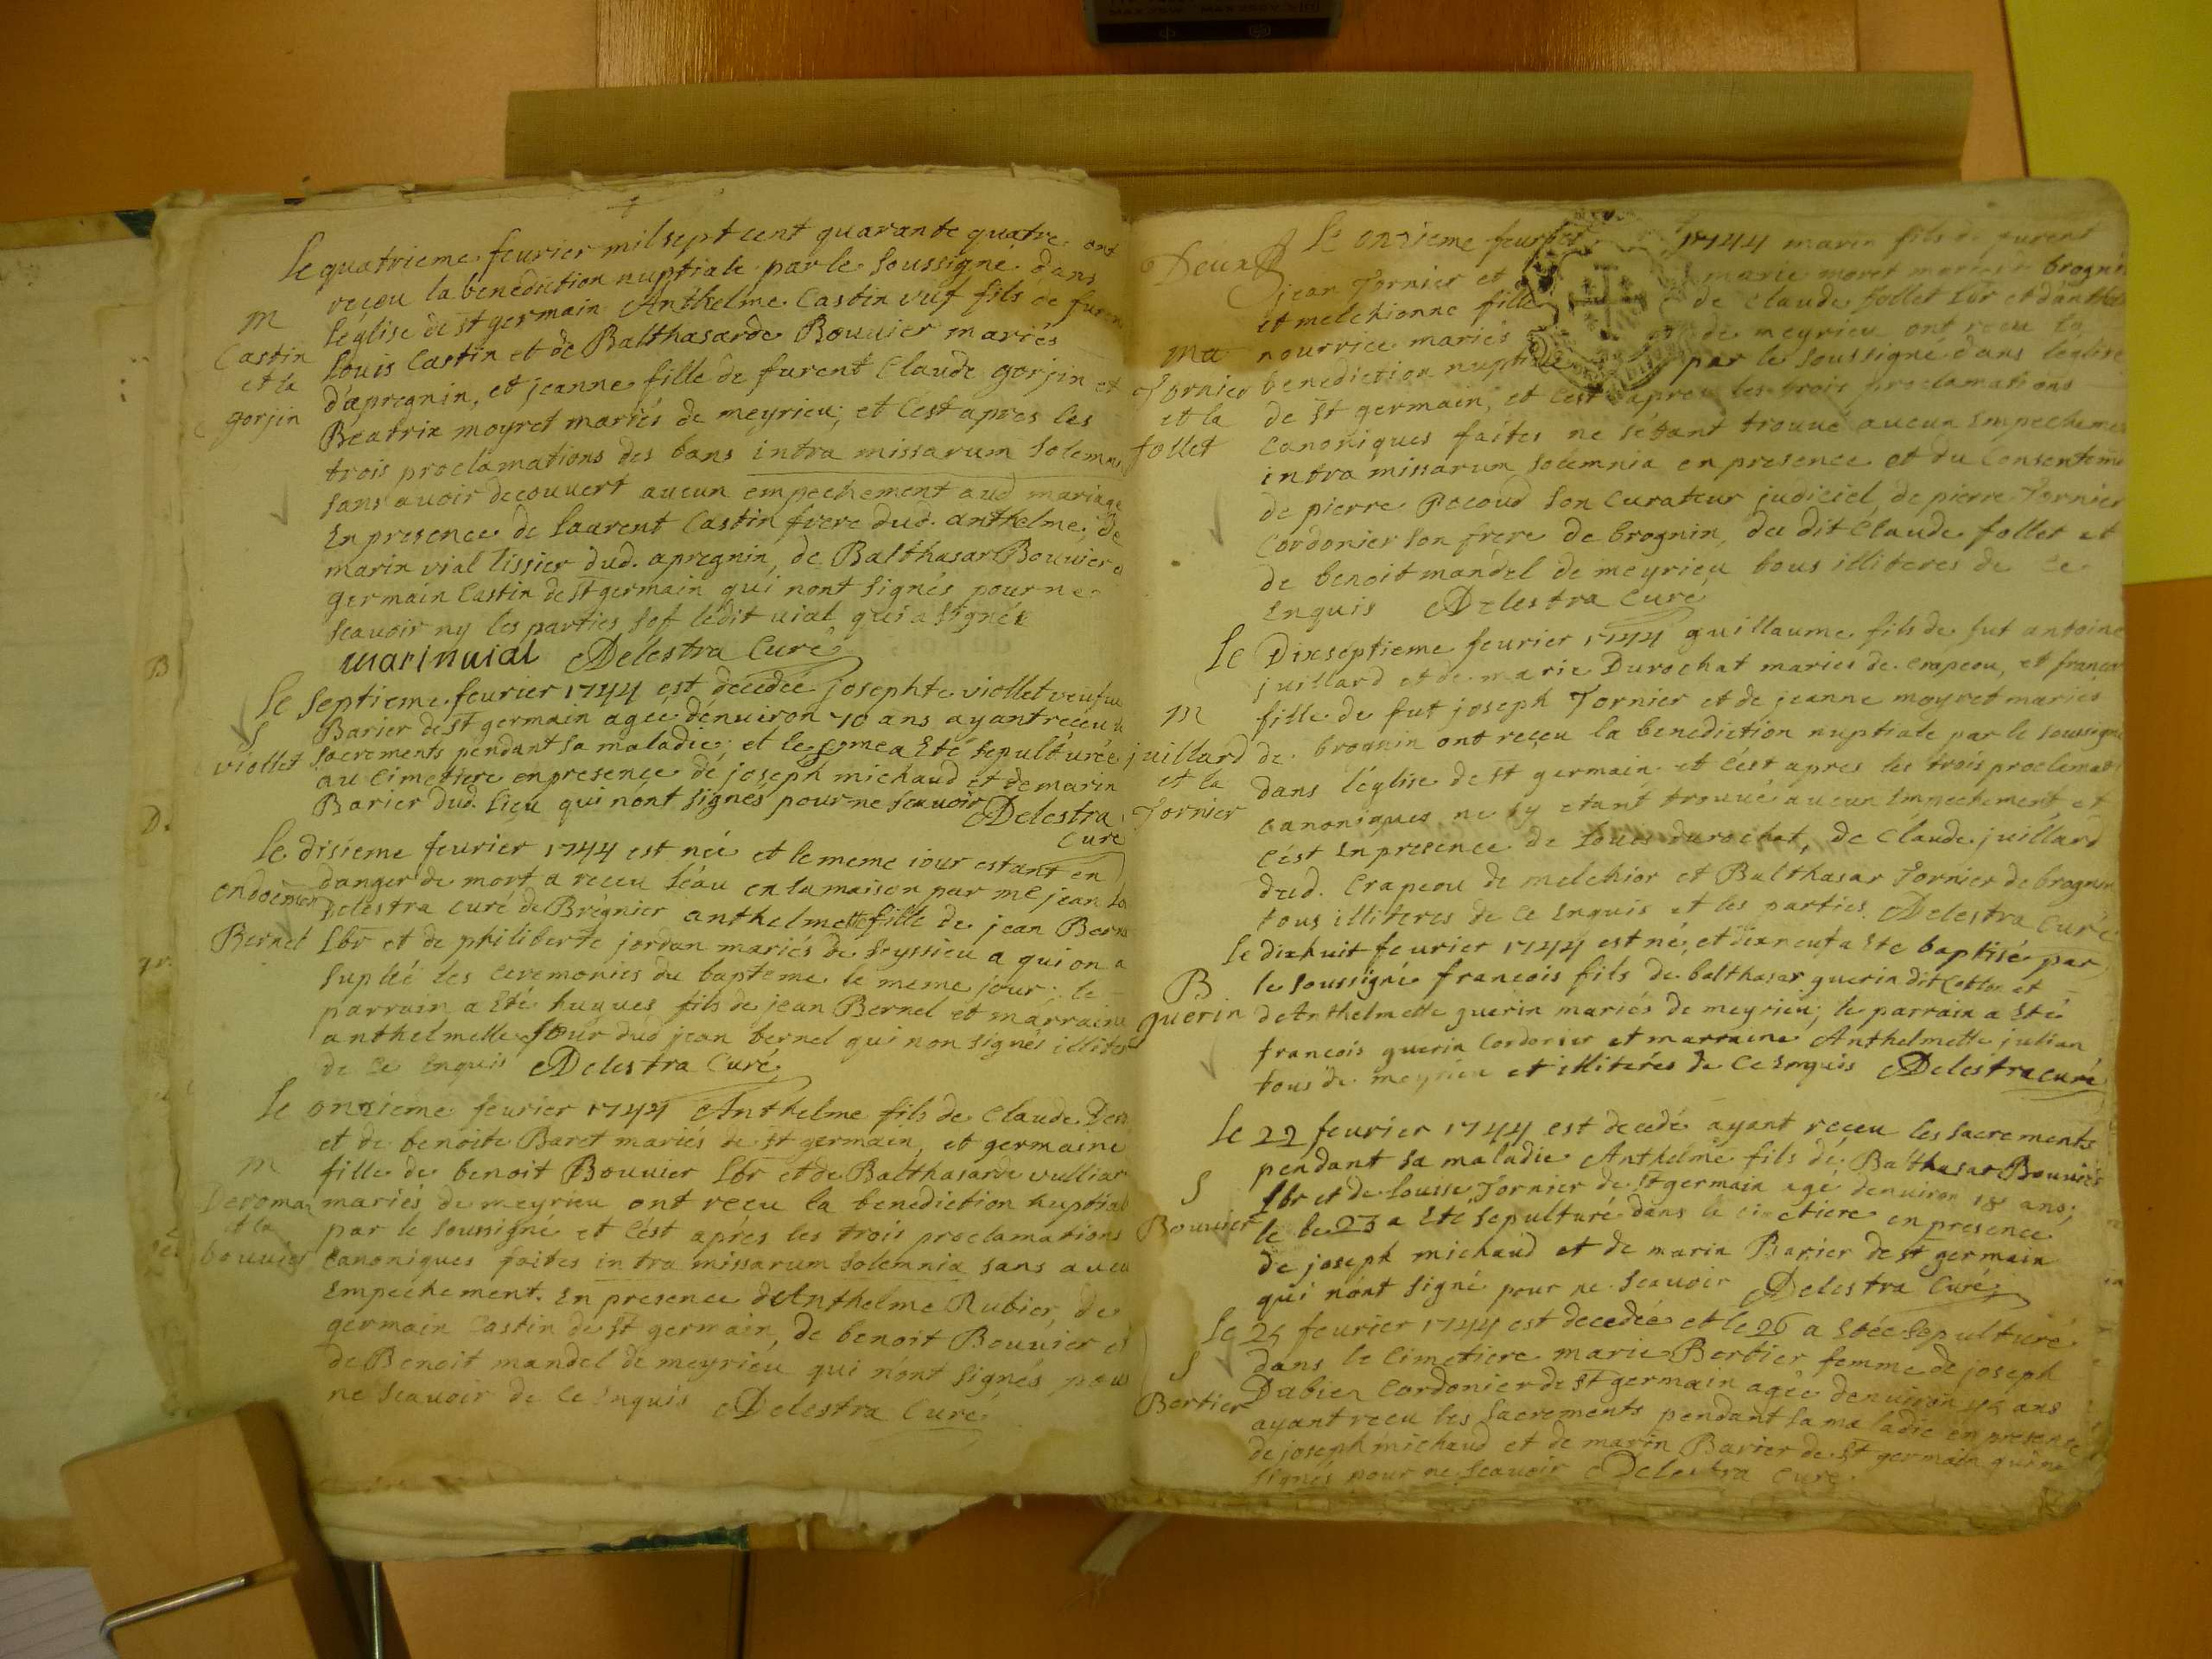 Le quatrieme feurier mil sept cent quarante quatre ont
receu la benediction nuptiale par le soussigné dans
l'eglise de st germain Anthelme Castin vuf fils de furent
M
Castin
et la
gorjin
Louis Castin et de Balthasarde Bouuier mariés
d'apregnin, et jeanne fille de furent Claude gorjin et
Beatrix moyret mariés de meyrieu; et c'est apres les
trois proclamations des bans intra missarum solemnia
sans auoir decouuert aucun empechement aud mariage
En presence de laurent Castin frere dud. anthelme, de
marin vial tissier dud. apregnin, de Balthasar Bouuier et
germain Castin de st germain qui nont signés pour ne
scauoir ny les parties sof ledit uial qui a signé
marin uial Delestra Curé
Le septieme feurier 1744 est decedée josephte viollet veufue
S
viollet
Barier de st germain agée d'enuiron 70 ans ayant receu les
sacrements pendant sa maladie; et le 8me a Eté sepulturée
au cimetiere en presence de joseph michaud et de marin
Barier dud. lieu qui n'ont signés pour ne scauoir Delestra
Curé
Le disieme feurier 1744 est née et le meme iour estant en
danger de mort a receu l'éau en la maison par me jean
ondoiement
Bernel
Delestra curé de Brégnier anthelmette fille de jean Bernel
Lbr et de philiberte jordan mariés de seyssieu a qui on a
suplée les ceremonies du bapteme le meme jour; le
parrain a Eté hugues fils de jean Bernel et marraine
anthelmette soeur dud jean bernel qui non signés illiteres
de ce enquis Delestra Curé
Le onzieme feurier 1744 Anthelme fils de Claude
et de benoite Baret mariés de st germain, et germaine
M
Deromas
et la
bouuier
fille de benoit Bouuier Lbr et de Balthasarde vulliar
mariés de meyrieu ont recu la benediction nuptiale
par le soussigné et c'ést aprés les trois proclamations
Canoniques faites intra missarum solemnia sans aucun
Empechement. En presence d'Anthelme Rubier, de
germain Castin de st germain, de benoit Bouuier et
de Benoit mandel de meyrieu qui n'ont signés pour
ne scauoir de ce Enquis Delestra Curé
Deux
Le onzieme feurier 1744 marin fils de furent
jean Tornier et marie moret mariés de brognin
et melchionne fille de Claude follet Lbr et d'anthel
Ma
Tornier
et la
follet
nourrice mariés de meyrieu ont recu la
benediction nuptiale par le soussigné dans l'église
de st germain; et c'est apres les trois proclamations
Canoniques faites ne s'étant trouué aucun Empechement
intra missarum solemnia en presence et du Consentement
de pierre Pecoud son Curateur judiciel, de pierre Tornier
Cordonier son frere de brognin, du dit Claude follet et
de benoit mandel de meyrieu tous illiteres de ce
Enquis Delestra Curé
Le Dixseptieme feurier 1744 guillaume fils de fut antoine
juillard et de marie Durochat mariés de crapeou, et francoise
M
juillard
et la
Tornier
fille de fut joseph Tornier et de jeanne moyret mariés
de brognin ont reçeu la benediction nuptiale par le soussigné
dans l'église de st germain et c'ést apres les trois proclamat
Canoniques ne sy etant trouué aucun Empechement, et
c'ést En presence de louis durochat, de Claude juillard
dud. Crapeou de melchior et Balthasar Tornier de brognin
tous illiteres de ce Enquis et les parties. Delestra Curé
Le dixhuit feurier 1744 est né, et dixneuf a Eté baptisé par
B
guerin
le soussigné francois fils de balthasar guerin dit et
d'Anthelmette guerin mariés de meyrieu; le parrain a Eté
francois guerin Cordonier et marraine Anthelmette julian
tous de meyrieu et illiterés de ce Enquis Delestra curé
Le 22 feurier 1744 est decedé ayant receu les sacrements
pendant sa maladie Anthelme fils de Balthasar Bouuier
S
Bouuier
Lbr et de louise Tornier de st germain agé denuiron 18 ans;
le le 23 a Eté sepulturé dans le cimetiere en presence
de joseph michaud et de marin Barier de st germain
qui n'ont signé pour ne scauoir Delestra Curé
Le 25 feurier 1744 est decedée et le 26 a Etée sepulturé
S
Bertier
dans le Cimetiere marie Bertier femme de joseph
Dubier Cordonier de st germain agée denuiron 45 ans
ayant receu les sacrements pendant sa maladie en presence
de joseph michaud et de marin Barier de st germain qui n'ont
signés pour ne scauoir Delestra Curé